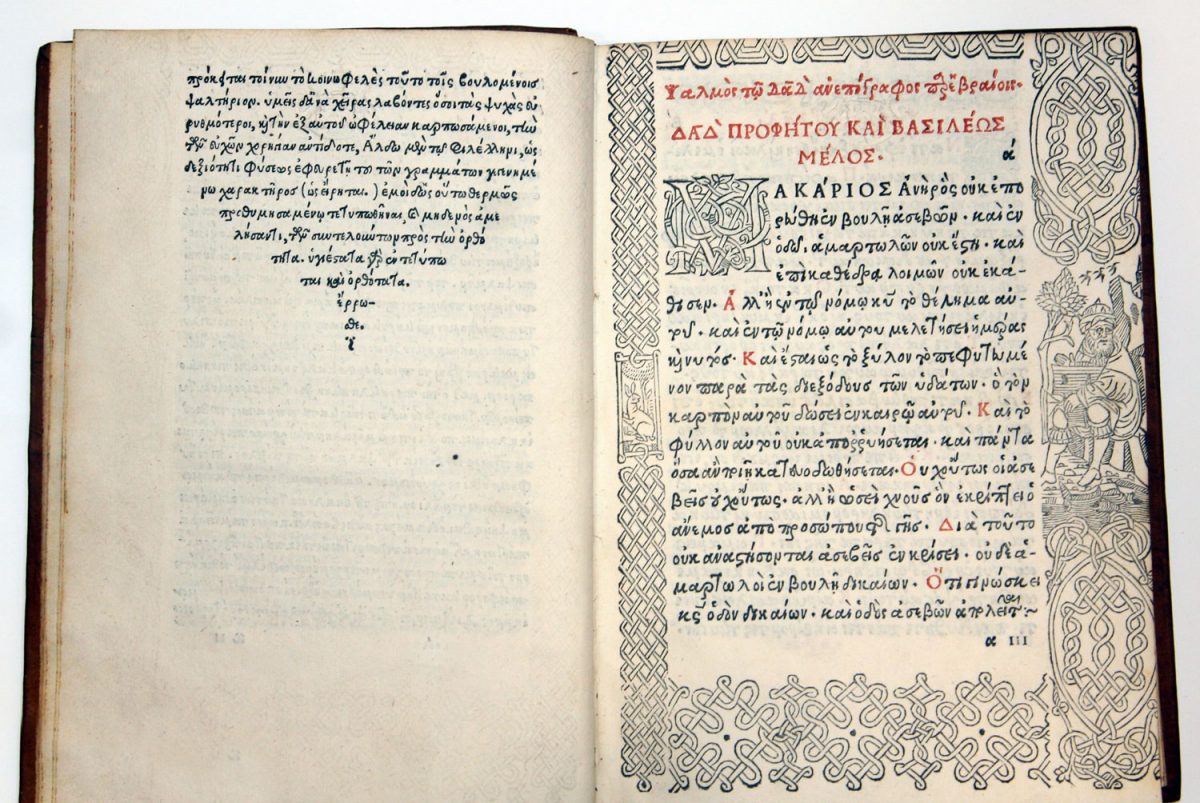 πρόκειται τοίνυν τὸ κοινωφελὲς τοῦτο τοῖς βουλομένοις
ψαλτήριον. ὑμεῖς δ' ἀνὰ χεῖρας λαβόντες ὅσοι τὰς ψυχὰς εὐ
ρυθμότεροι, καὶ τὴν ἐξ αὐτοῦ ὠφέλειαν καρπωσάμενοι, τὴν
τῶν εὐχῶν χρησίαν ἀντίδοτε, Ἄλδῳ μὲν τῷ φιλέλληνι, ὡς
δεξιότητι φύσεως ἐφευρετῇ τοῦ τῶν γραμμάτων γενησομέ
νου χαρακτῆρος (ὡς εἴρηται.) ἐμοὶ δ' ὡς οὕτω θερμῶς
προθυμησαμένῳ τετυπωθῆναι, καὶ μηδενὸς ἀμε
λήσαντι, τῶν συντελούντων πρὸς τὴν ὀρθό
τητα. ὑγιέστατα γὰρ ἐντετύπω
ται καὶ ὀρθότατα.
ἔρρω-
σθε.
Ψαλμὸς τῷ Δαδ ἀνεπίγραφος παρ' ἑβραίοις.
ΔΑΔ ΠΡΟΦΗΤΟΥ ΚΑΙ ΒΑΣΙΛΕΩΣ
ΜΕΛΟΣ.
ά
ΜΑΚΑΡΙΟΣ Ἀνὴρ ὃς οὐκ ἐπο
ρεύθη ἐν βουλῇ ἀσεβῶν. καὶ ἐν
ὁδῷ ἁμαρτωλῶν οὐκ ἔστη. καὶ
ἐπὶ καθέδρᾳ λοιμῶν οὐκ ἐκά-
θισεν. Ἀλλ' ἢ ἐν τῷ νόμῳ κυ τὸ θέλημα αὐ-
τοῦ. καὶ ἐν τῷ νόμῳ αὐτοῦ μελετήσει ἡμέρας
καὶ νυκτός. Καὶ ἔσται ὡς τὸ ξύλον τὸ πεφυτευμέ
νον παρὰ τὰς διεξόδους τῶν ὑδάτων. ὃ τὸν
καρπὸν αὐτοῦ δώσει ἐν καιρῷ αὐτοῦ. Καὶ τὸ
φύλλον αὐτοῦ οὐκ ἀπορρυήσεται. καὶ πάντα
ὅσα ἂν ποιῇ κατευοδωθήσεται. Οὐχ οὕτως οἱ ἀσε
βεῖς οὐχ οὕτως. ἀλλ' ἢ ὡσεὶ χνοῦς ὃν ἐκρίπτει ὁ
ἄνεμος ἀπὸ προσώπου τῆς γῆς. Διὰ τοῦτο
οὐκ ἀναστήσονται ἀσεβεῖς ἐν κρίσει. οὐδὲ ἁ-
μαρτωλοὶ ἐν βουλῇ δικαίων. Ὅτι γινώσκει
κς ὁδὸν δικαίων. καὶ ὁδὸς ἀσεβῶν ἀπολεῖται
α III